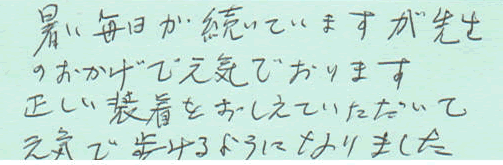 暑い毎日が続いていますが先生
のおかげで元気でおります
正しい装着をおしえていただいて
元気で歩けるようになりました